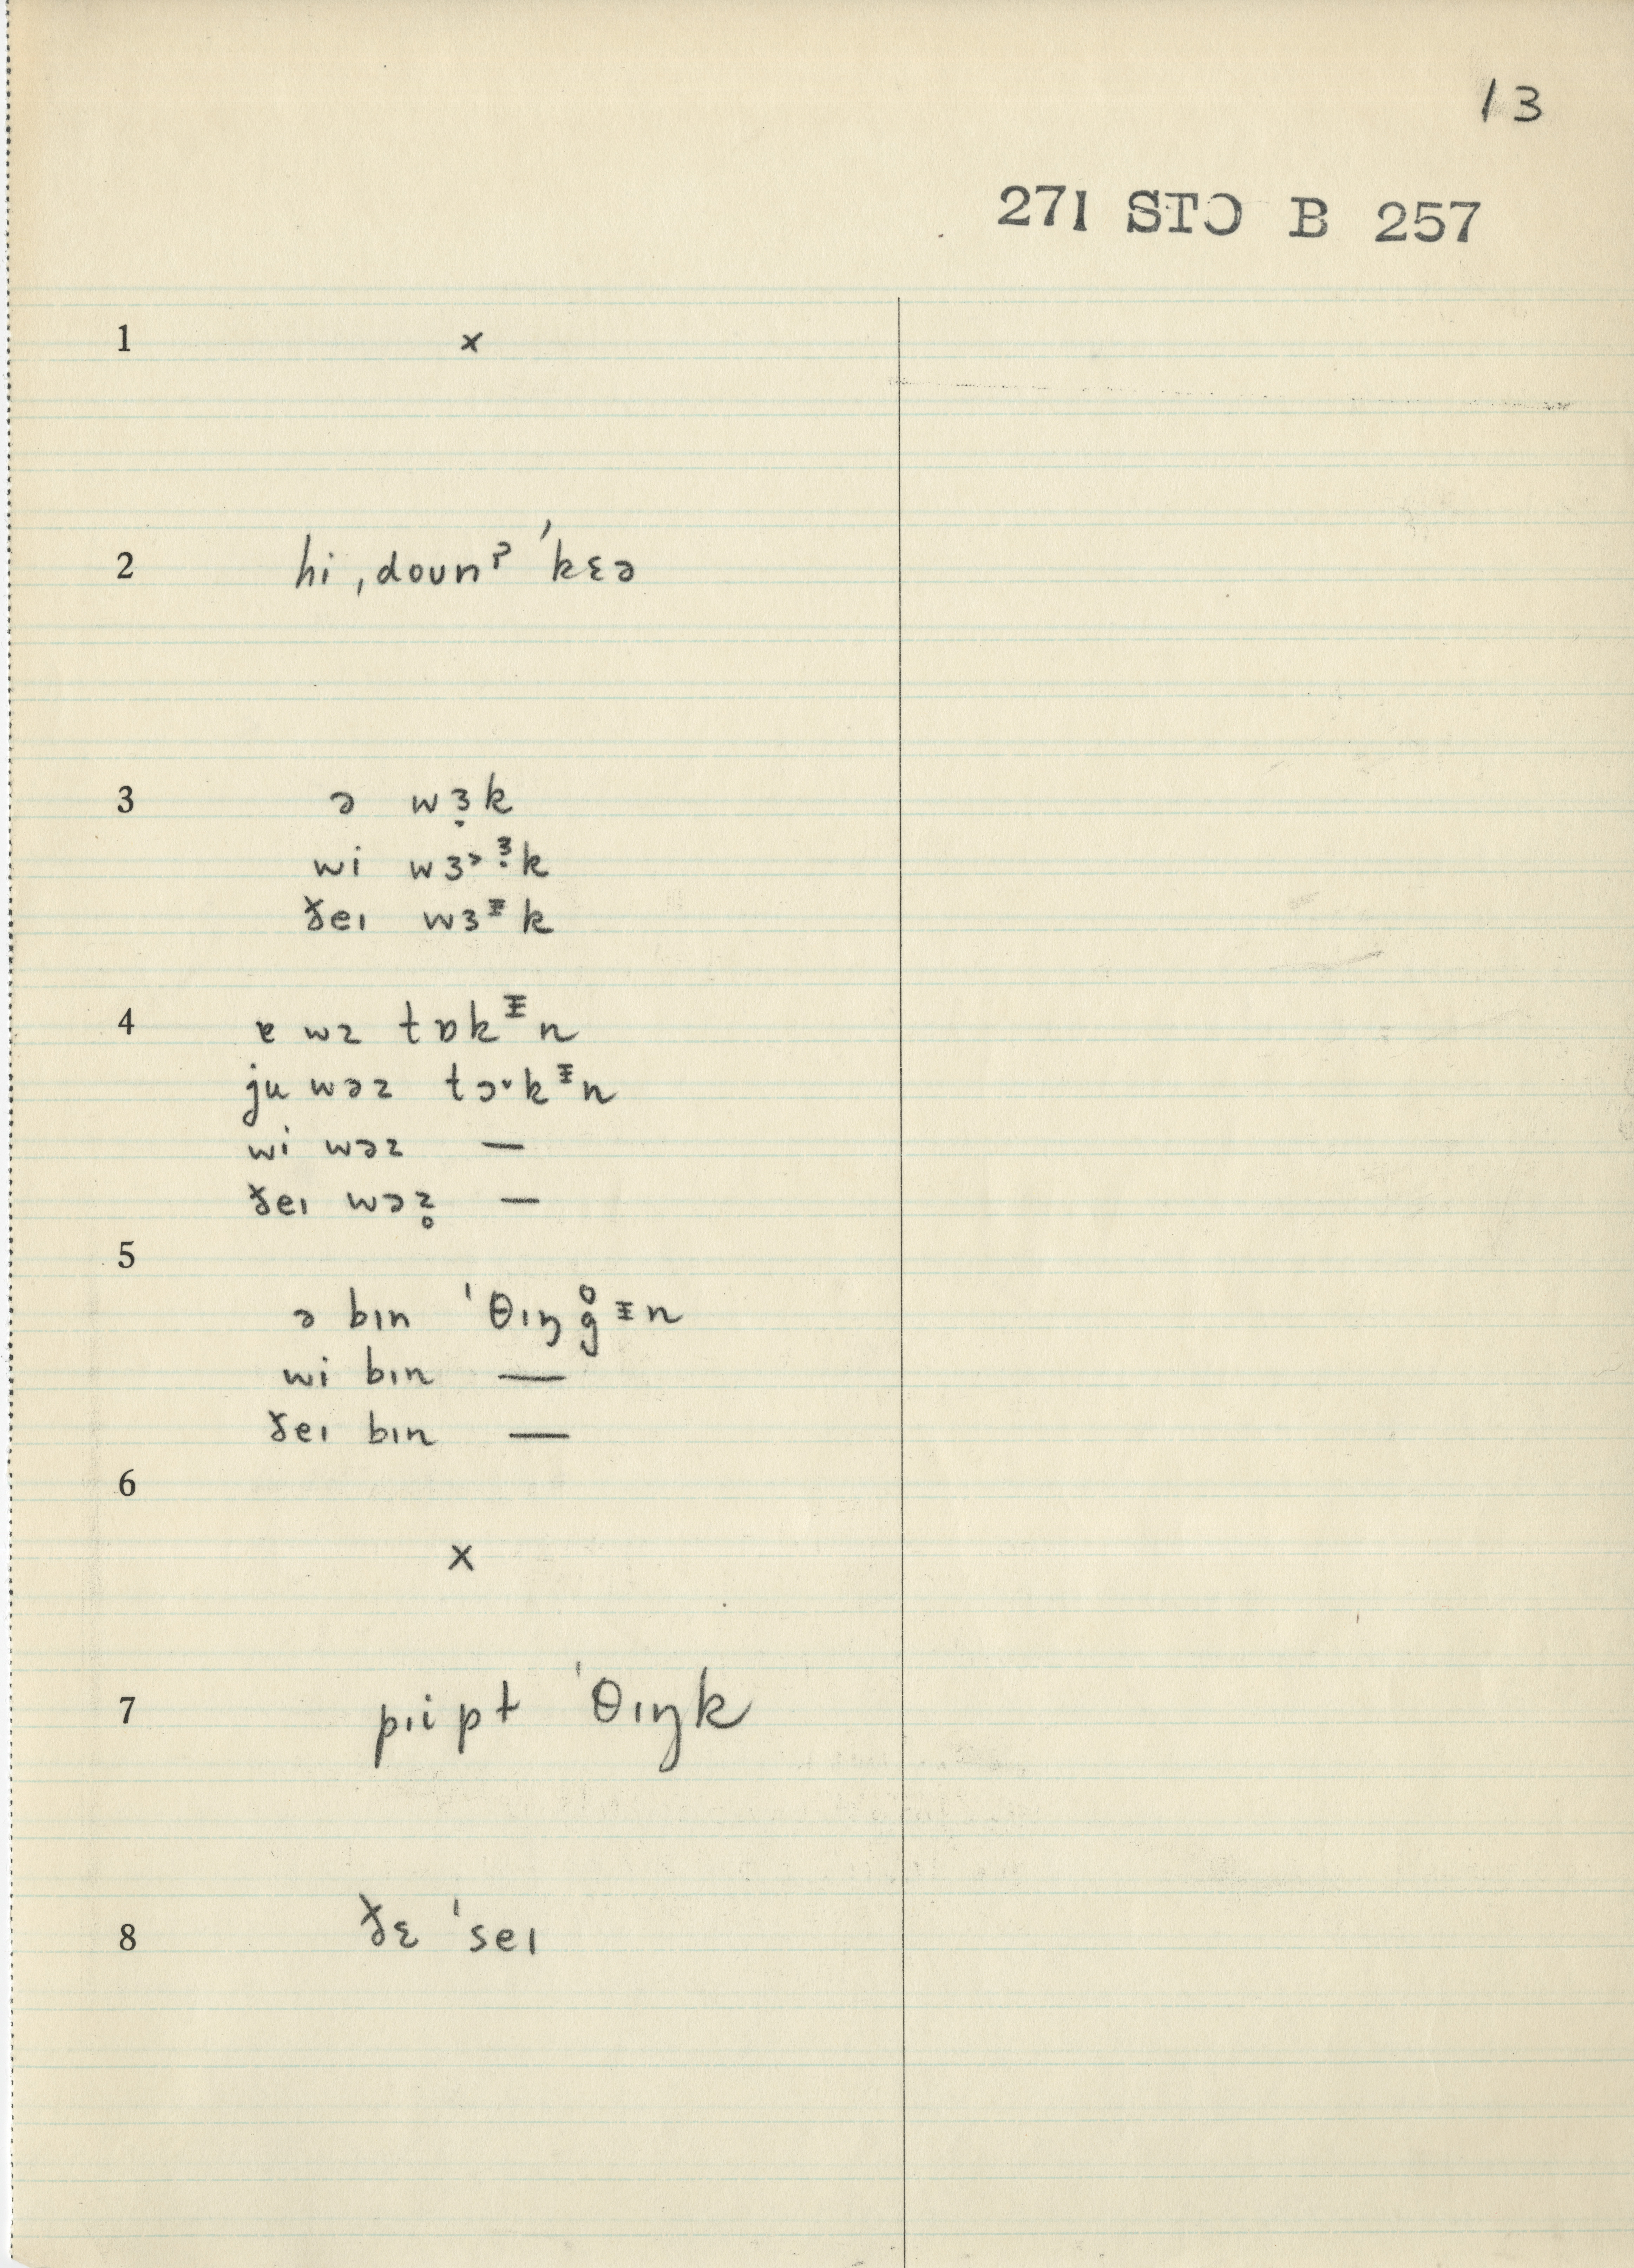 13
271 STƆ B 257
1 ×
2 hi ˌdoʊnˀ ˈkɛə
3 ə wɜ̣k
wi wɜ˃ɜ̣k
ðeɪ wɜᵻk
4 ɐ wz tɒkᵻn
ju wəz tɔ˅kᵻn
wi wəz —
ðeɪ wəz̥ —
5
ə bɪn ˈθɪŋg̊ᵻn
wi bɪn —
ðeɪ bɪn —
6
×
7 pɪipt ˈθɪŋk
8 ðɛ ˈseɪ